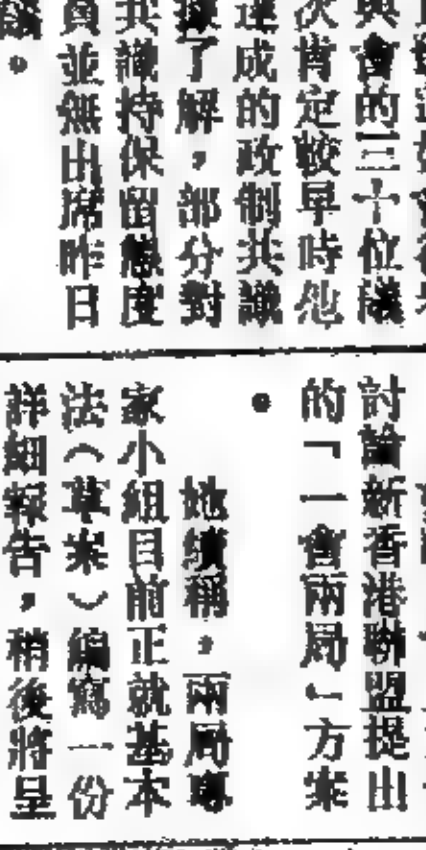 與會的三十位議
次肯定較早時他
達成的政制共識
據了解，部分對
共識持保留態度
員並無出席昨日
。
討論新香港聯盟提出
的「一會兩局」方案
。
她續稱，兩局專
家小組目前正就基本
法（草案）編寫一份
詳細報告，稍後將呈